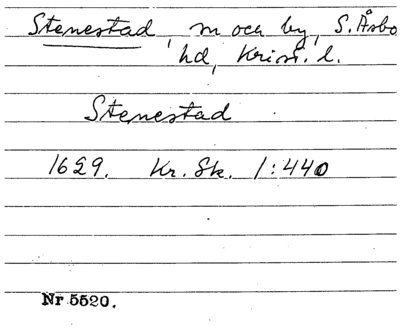 Stenestad, m och by, S. Åsbo
hd, Krist. l.
Stenestad
1629. Kr. Sk. 1:440
Nr 5520.